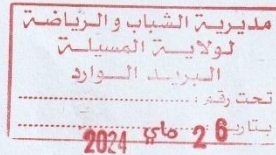 مديرية الشباب والرياضة
لولاية المسيلة
البريد الوارد
تحت رقم :
بتاريخ : 26 ماي 2024